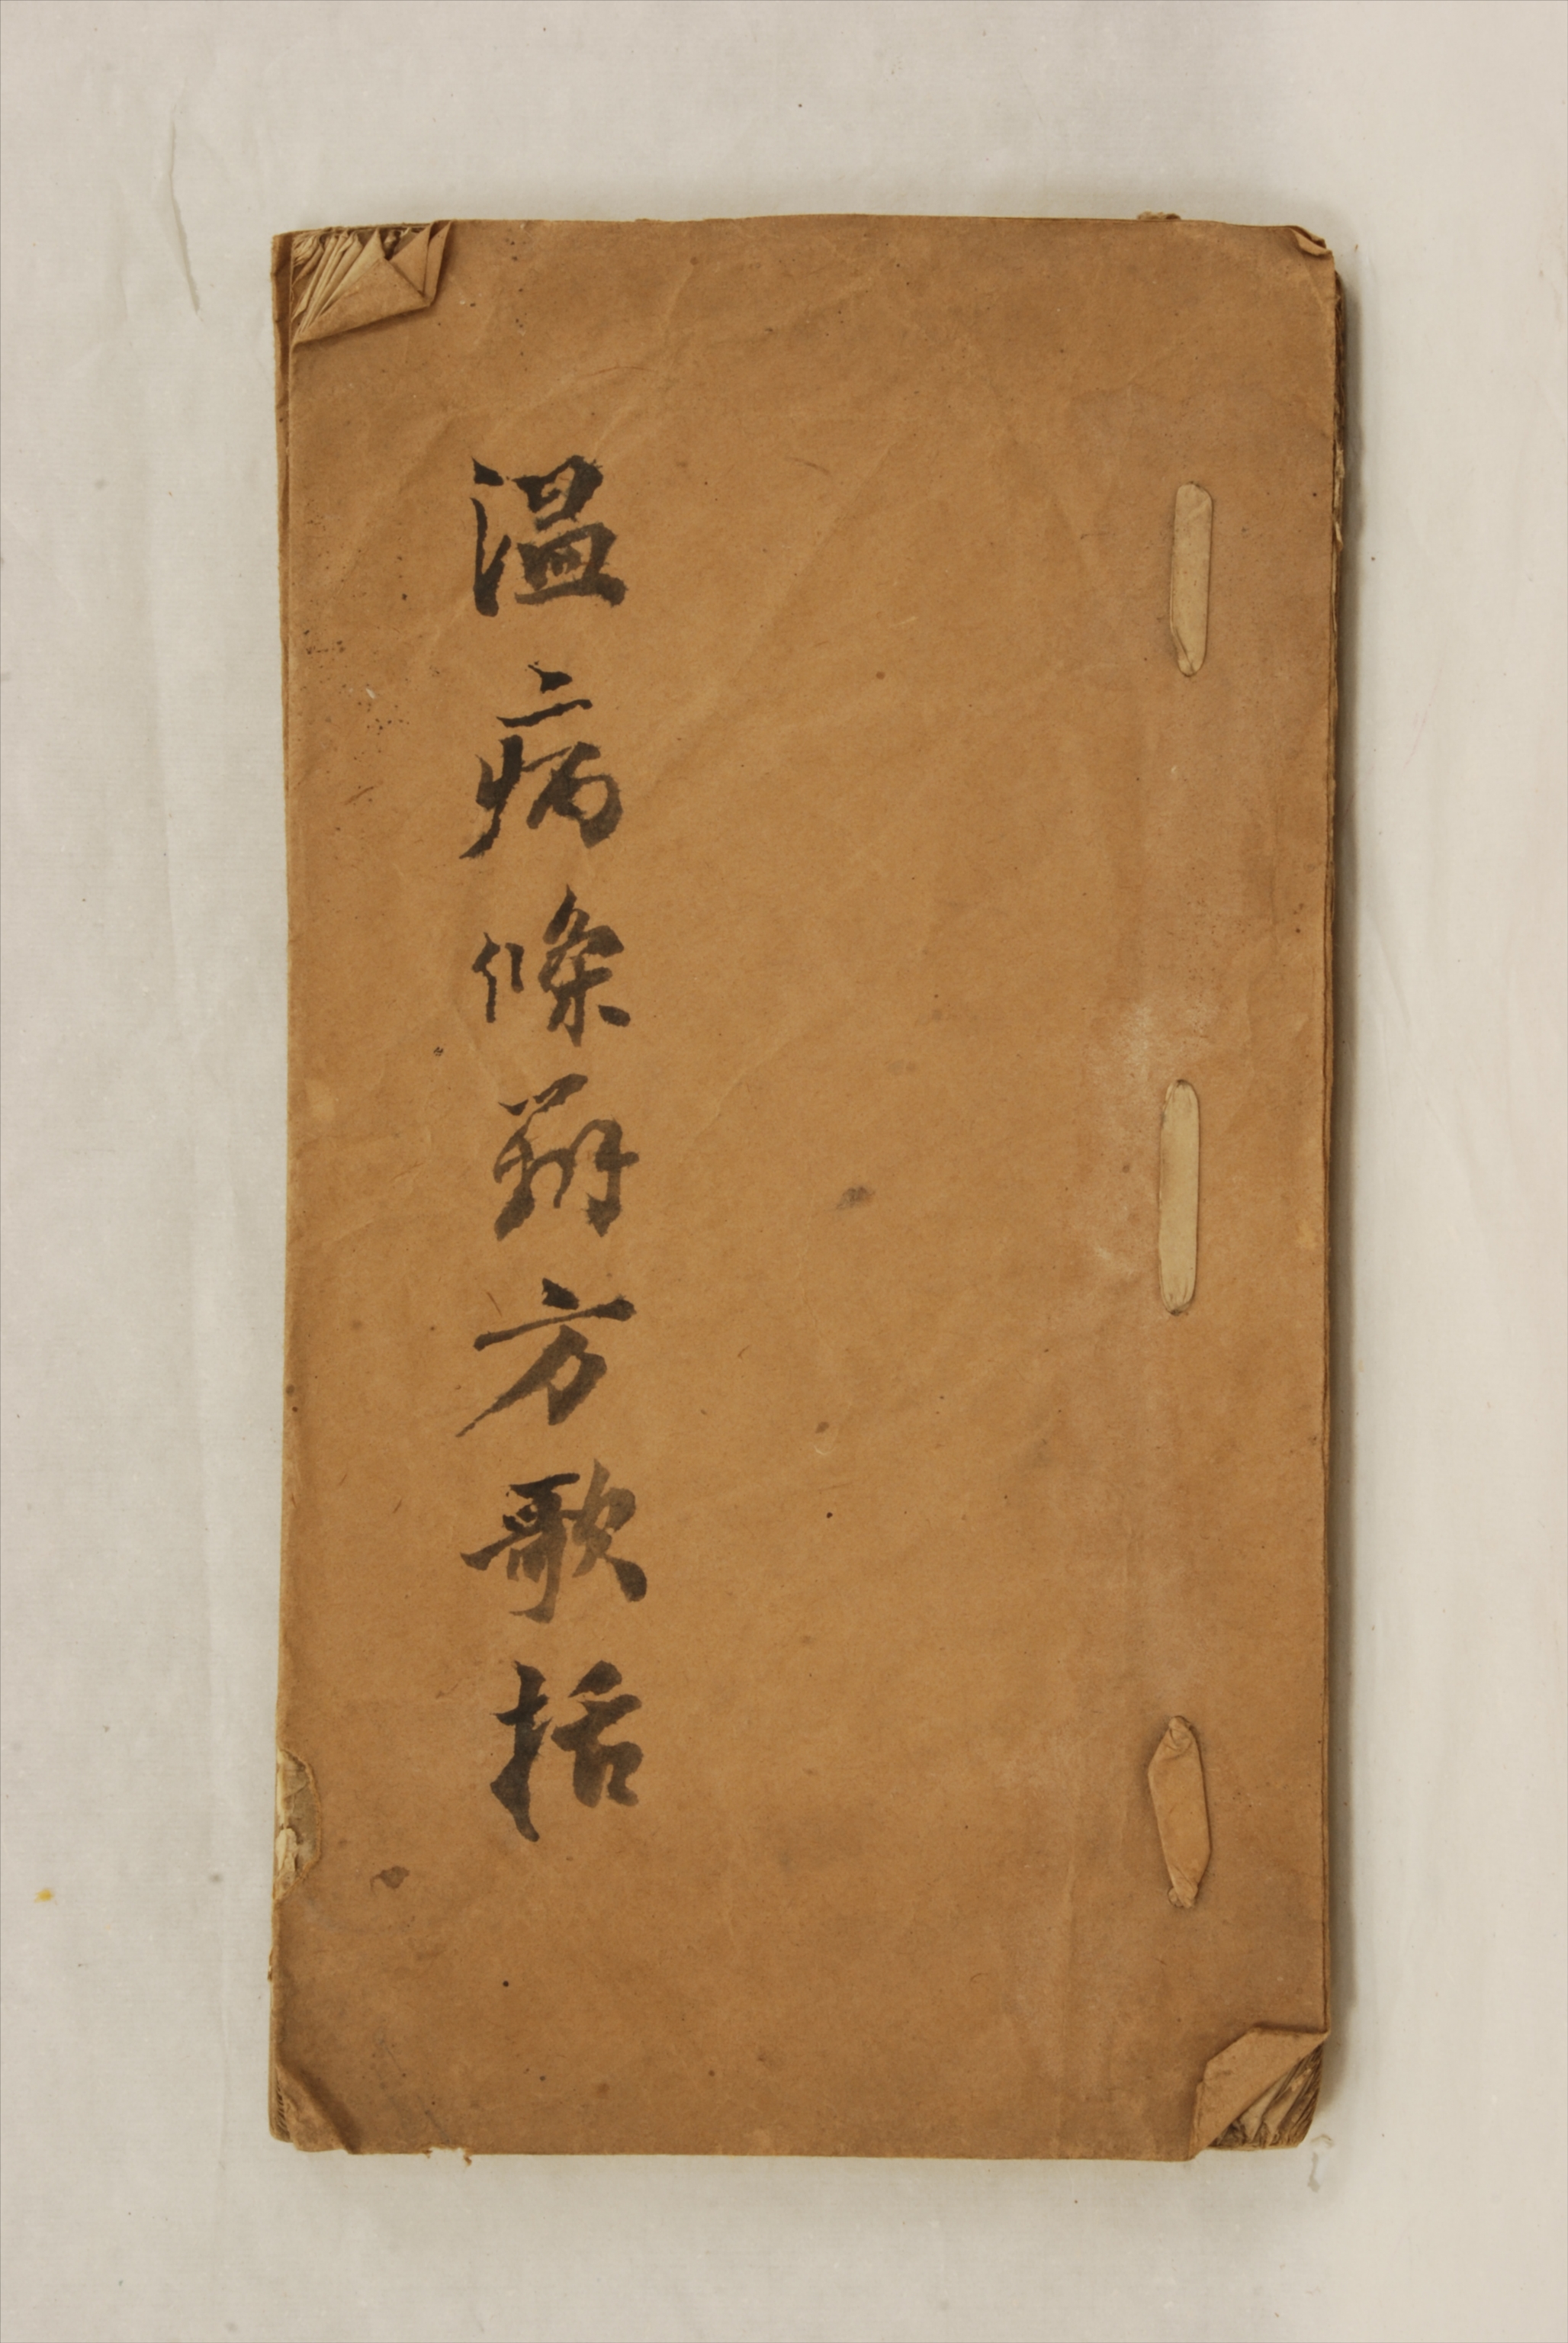 温病條辨方歌括